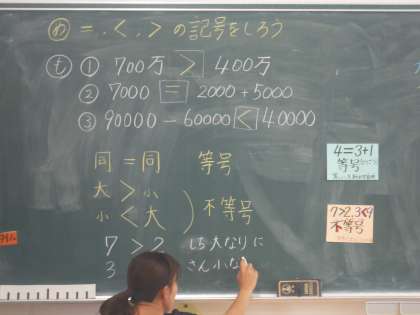 め =、<、> の記号をしろう
も ① 700万 > 400万
② 7000 = 2000+5000
③ 90000-60000 < 40000
同 = 同 等号
大 > 小
小 < 大 不等号
7 > 2 しち大なりに
3 さん小な
4=3+1
等号
7>2,3<9
不等号